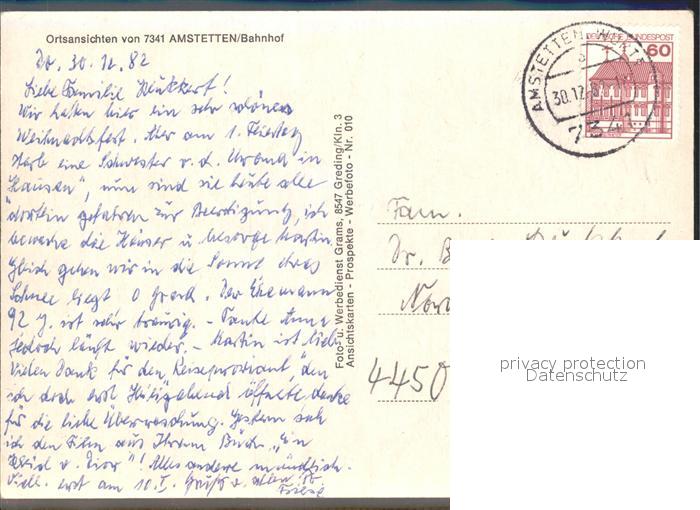 Ortsansichten von 7341 AMSTETTEN/Bahnhof
Do. 30.12.82
Liebe Familie
Wir hatten hier ein sehr schönes
Weihnachtsfest. Aber am 1. Feiertag
starb eine Schwester v. d. in
Hausen", nun sind sie heute alle
dorthin gefahren zur Beerdigung, ich
bewache die Häuser u. besorge Martin.
Gleich gehen wir in die Sonne etwas
Schnee liegt 0 Grad. Der Ehemann
92 J. ist sehr traurig. - Tante Anna
jedoch läuft wieder. - Martin ist lieb.
Vielen Dank für den Reiseproviant, den
ich doch erst Heiligabend öffnete, danke
für die liebe Überraschung. Gestern sah
ich den Film aus Ihrem Buch „Ein
Kleid v. Dior"! Alles andere mündlich.
Viell. erst am 10.I. Grüße
Foto- u. Werbedienst Grams, 8547 Greding/Kln. 3
Ansichtskarten - Prospekte - Werbefoto - Nr. 010
AMSTETTEN, WÜRTT
30.12.8
734
DEUTSCHE BUNDESPOST
60
Fam.
Dr. B
Nor
4450
privacy protection
Datenschutz